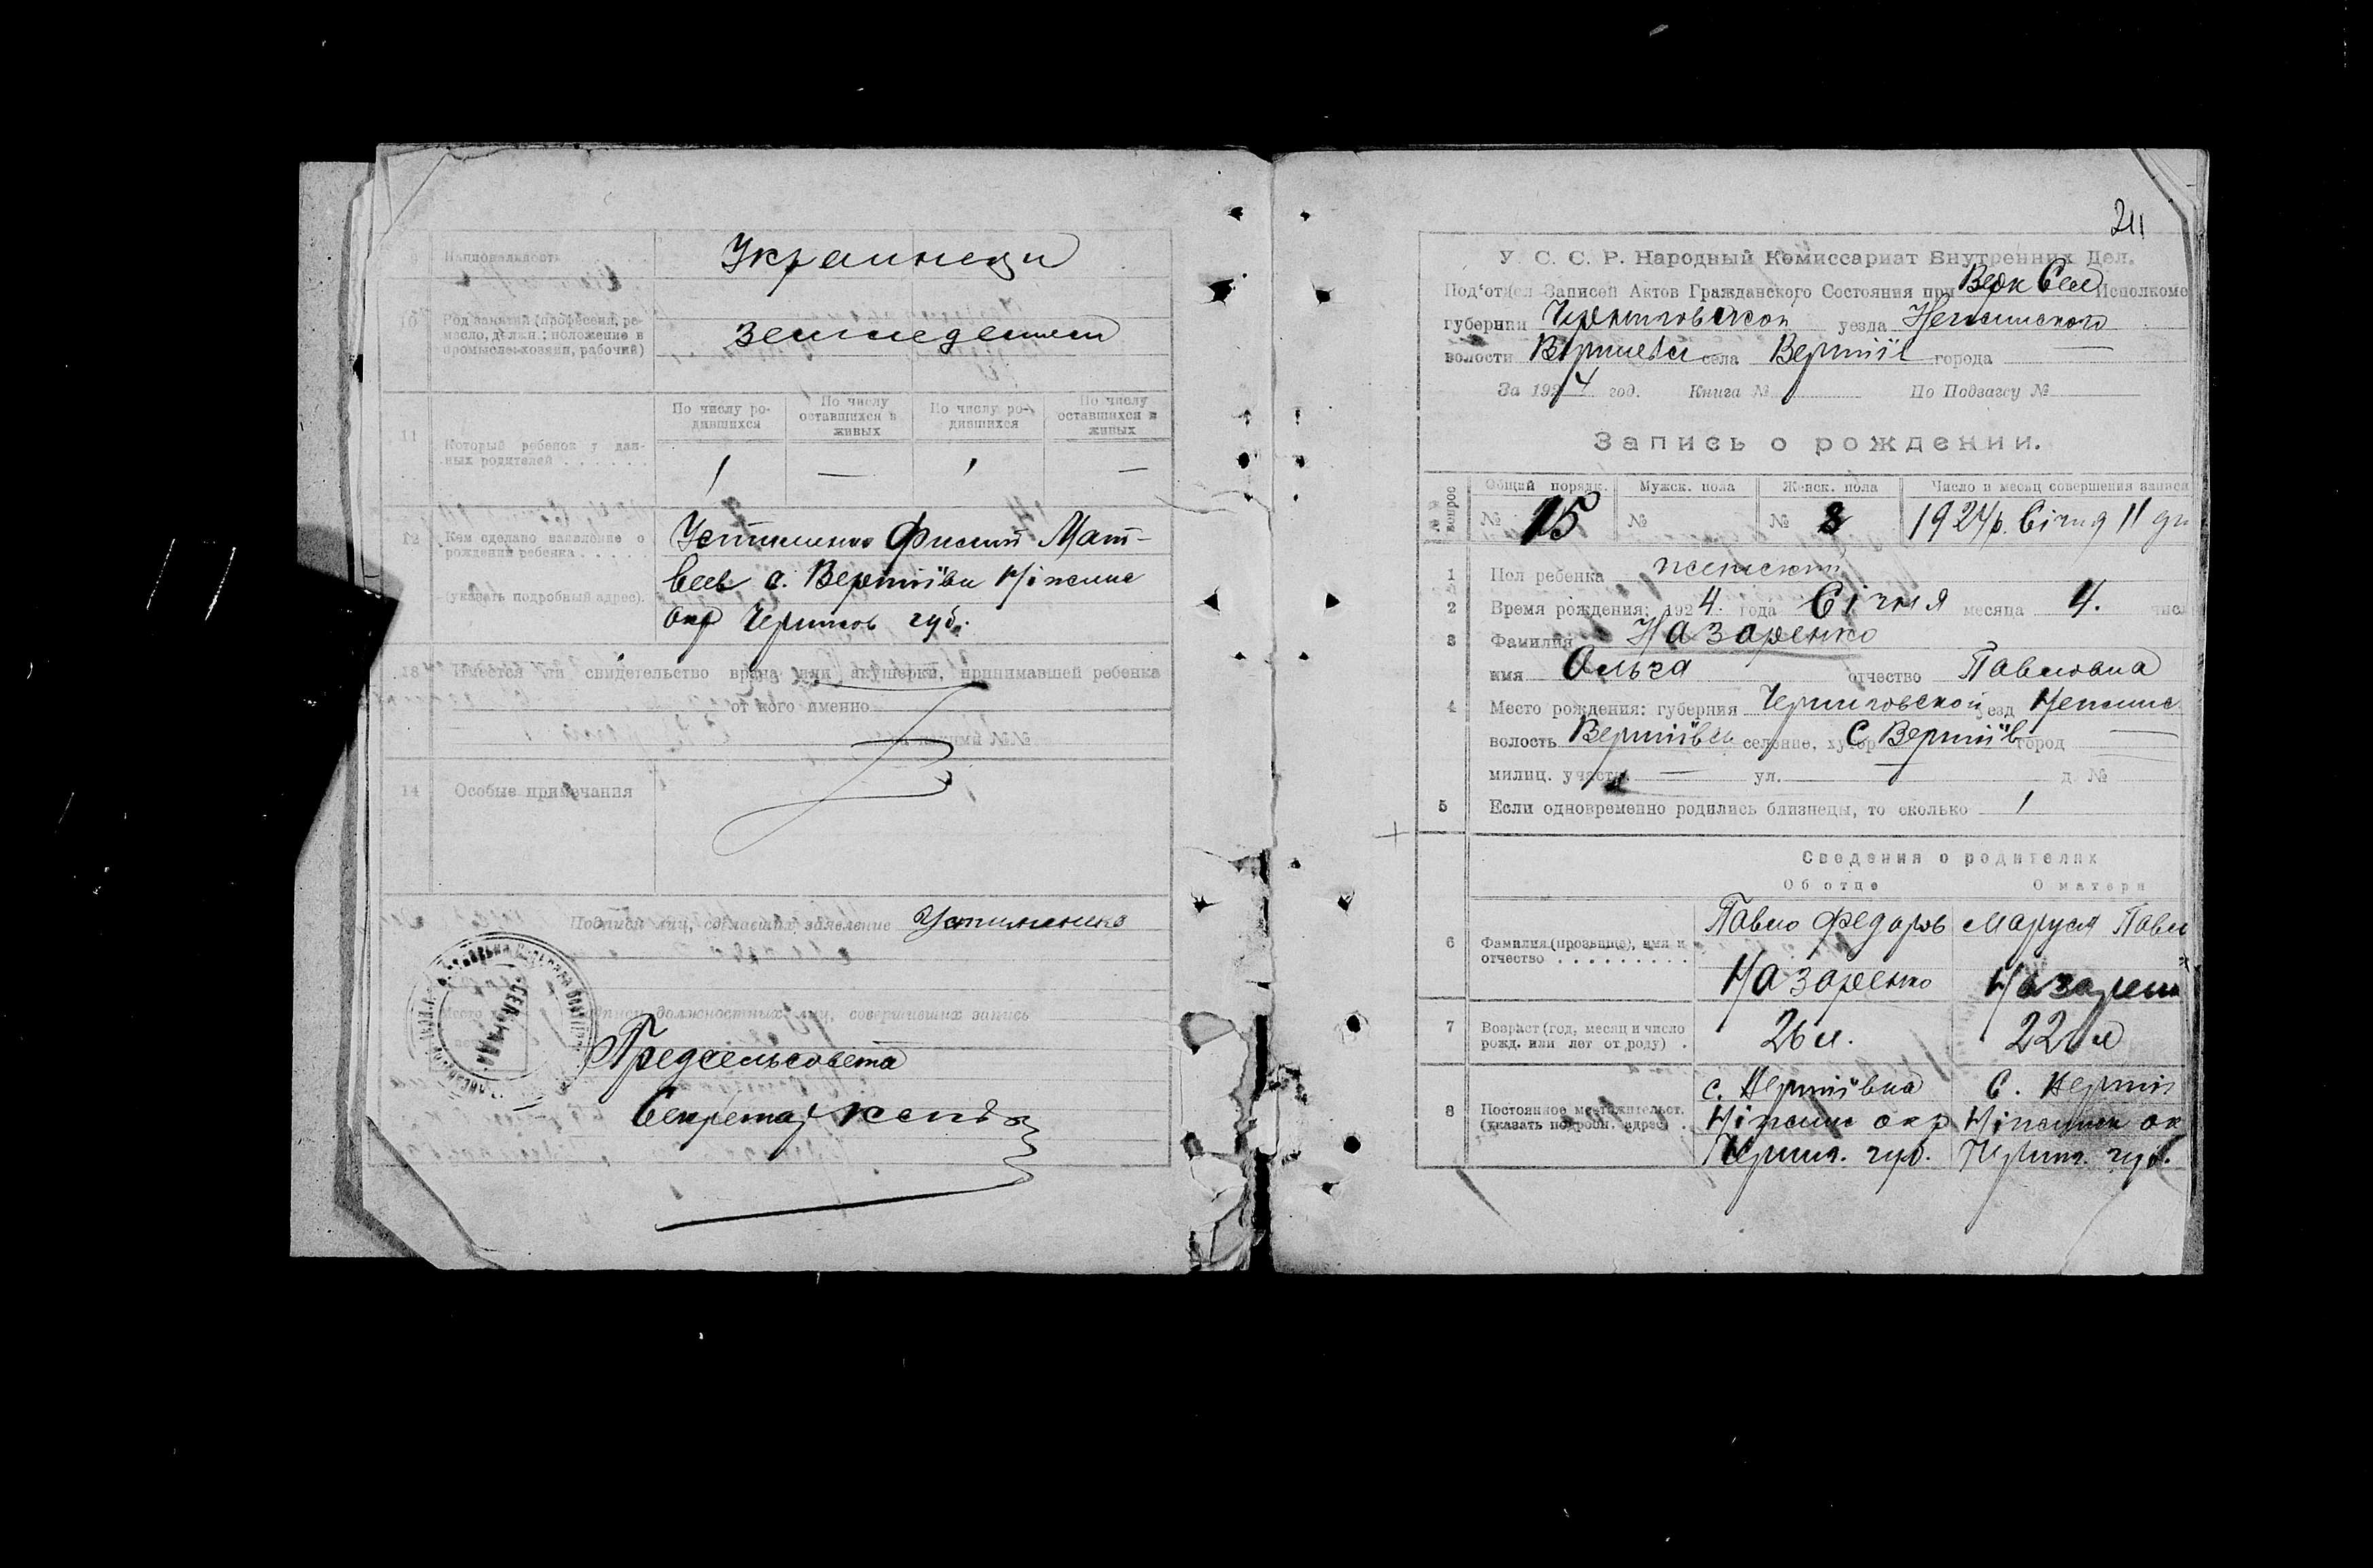 9 Национальность
Украинеци
10 Род занятий (профессия, ре-
месло, должн.; положение в
промысле: хозяин, рабочий)
Земледелеи
По числу ро-
дившихся
По числу
оставшихся в
живых
По числу ро-
дившихся
По числу
оставшихся в
живых
11 Который ребенок у дан-
ных родителей . . . . . .
1 — 1 —
12 Кем сделано заявление о
рождении ребенка . . . . .
(указать подробный адрес).
Устименко Филип Мат-
веев с. Вертіївки Ніжинс
окр Чернигов губ.
13 Имеется ли свидетельство врача или акушерки, принимавшей ребенка
от кого именно
14 Особые примечания
Подписи лиц, сделавших заявление Устименко
Место
Подписи должностных лиц, совершивших запись
СЕЛЬРАДА
Предсельсовета
Секретар
211
У. С. С. Р. Народный Комиссариат Внутренних Дел.
Под'отдел Записей Актов Гражданского Состояния при Исполкоме
губернии Черниговской уезда Нежинского
волости села Вертіїв города
За 1924 год. Книга № По Подзагсу №
Запись о рождении.
№№ вопрос
Общий порядк. Мужск. пола Женск. пола Число и месяц совершения записи
№ 15 № № 8 1924р. Січня 11 дн
1 Пол ребенка женский
2 Время рождения: 1924. года Січня месяца 4. числ
3 Фамилия Назаренко
имя Ольга отчество Павловна
4 Место рождения: губерния Черниговской уезд Нежинс
волость Вертіївсь селение, хутор С Вертіїв город —
милиц. участк — ул. — д. №
5 Если одновременно родились близнецы, то сколько 1
Сведения о родителях
Об отце О матери
6 Фамилия (прозвище), имя и
отчество . . . . . . . . .
Павло Федоров Маруся Павл
Назаренко Назаренк
7 Возраст (год, месяц и число
рожд. или лет от роду) .
26 л. 22 л
8 Постоянное местожительст.
(указать подробн. адрес) .
с. Вертіївка С. Вертії
Ніжинс окр Ніжинск ок
Черниг. губ. Черниг. губ.